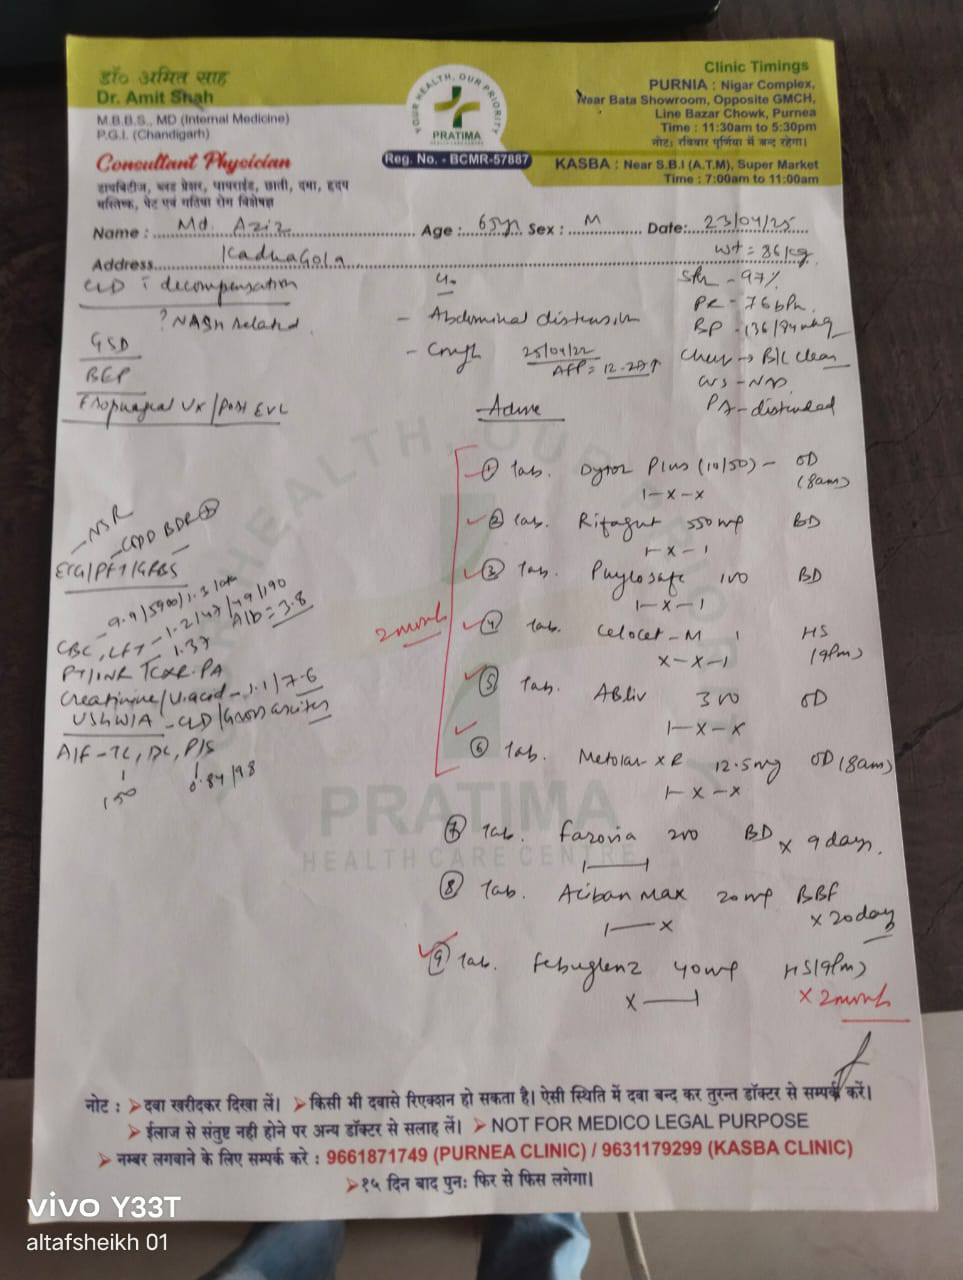 डॉ० अमित साह
Dr. Amit Shah
M.B.B.S., MD (Internal Medicine)
P.G.I. (Chandigarh)
Consultant Physician
डायबिटीज, ब्लड प्रेशर, थायराईड, छाती, दमा, हृदय
मस्तिष्क, पेट एवं गठिया रोग विशेषज्ञ
YOUR HEALTH, OUR PRIORITY
PRATIMA
Reg. No. - BCMR-57887
Clinic Timings
PURNIA : Nigar Complex,
Near Bata Showroom, Opposite GMCH,
Line Bazar Chowk, Purnea
Time : 11:30am to 5:30pm
नोट: रविवार पूर्णिया में बन्द रहेगा।
KASBA : Near S.B.I (A.T.M), Super Market
Time : 7:00am to 11:00am
Name : Md. Aziz Age : 65yr Sex : M Date: 23/04/25
Address
Wt = 86 kg
CLD c decompensation
? NASH related
GSD
BEP
Esophageal Vx / Post EVL
c/o
- Abdominal distension
- Cough
25/04/22
AFP = 12.27↑
SPO2 - 97%
PR - 76 bPm
BP - 136/94 mmHg
Chest → B/L clear
CVS - NAD
PA - distended
Advise
① Tab. Dytor Plus (10/50) - OD (8am)
1-x-x
② Tab. Rifagut 550mg BD
1-x-1
③ Tab. Phylosafe 100 BD
1-x-1
④ Tab. Celocet-M 1 HS (9Pm)
x-x-1
⑤ Tab. ABliv 300 OD
1-x-x
⑥ Tab. Metolar-XR 12.5mg OD (8am)
1-x-x
2 month
⑦ Tab. Farovia 200 BD x 9 days.
1—1
⑧ Tab. Aciban Max 20mg BBF x 20 day
1—x
⑨ Tab. Febuglenz 40mg HS (9Pm)
x—1
x 2 month
- NSR
- COPD BDR ⊕
ECG/PFT/GRBS
CBC, LFT - 1.2/47/49/190
Alb = 3.8
PT/INR - 1.37
Creatinine/U.acid - 1.1/7.6
USG W/A - CLD/Gross ascites
A/F - TC, DC, P/S
150
0.84/98
YOUR HEALTH, OUR PRIORITY
PRATIMA
HEALTH CARE CENTRE
नोट : ➤ दवा खरीदकर दिखा लें। ➤ किसी भी दवासे रिएक्शन हो सकता है। ऐसी स्थिति में दवा बन्द कर तुरन्त डॉक्टर से सम्पर्क करें।
➤ ईलाज से संतुष्ट नही होने पर अन्य डॉक्टर से सलाह लें। ➤ NOT FOR MEDICO LEGAL PURPOSE
➤ नम्बर लगवाने के लिए सम्पर्क करे : 9661871749 (PURNEA CLINIC) / 9631179299 (KASBA CLINIC)
➤ १५ दिन बाद पुनः फिर से फिस लगेगा।
vivo Y33T
altafsheikh 01